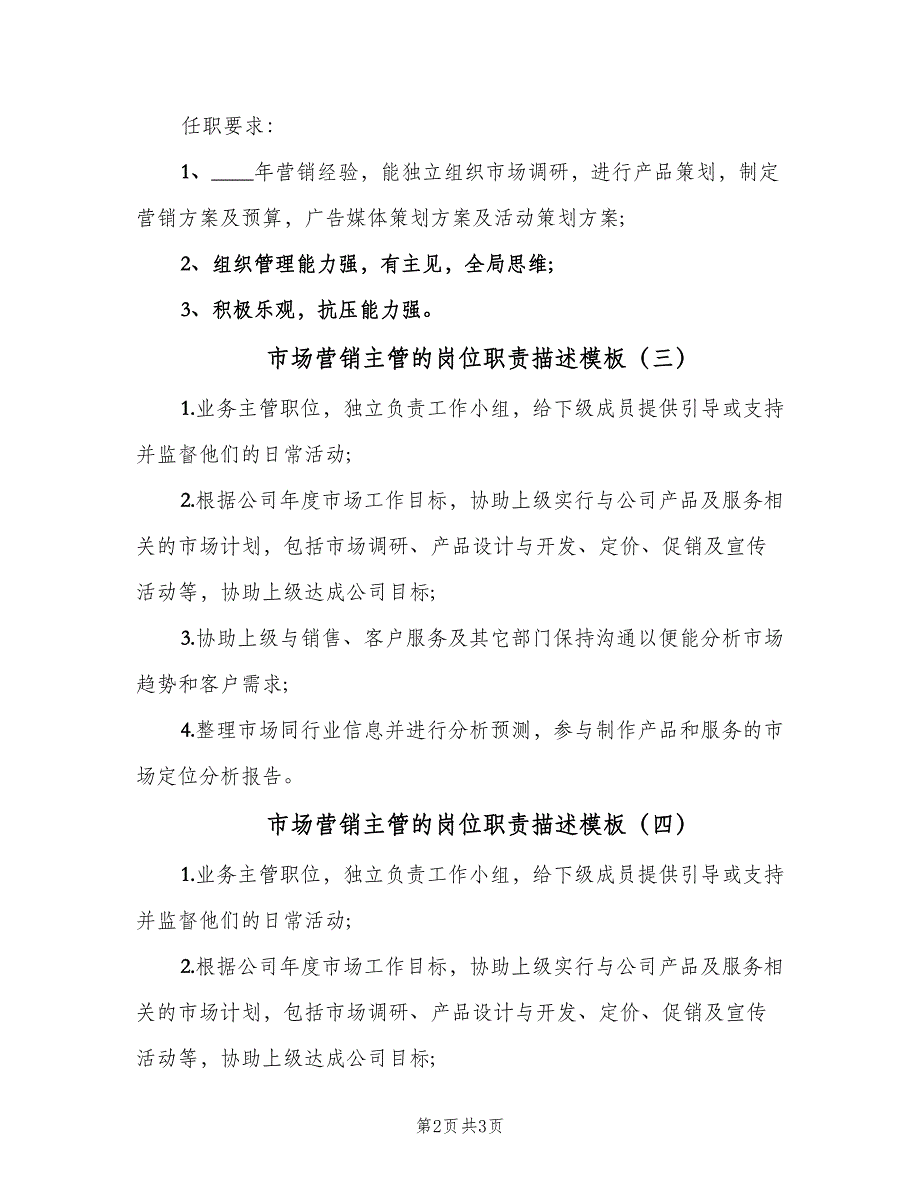 任职要求:
1、____年营销经验，能独立组织市场调研，进行产品策划，制定
营销方案及预算，广告媒体策划方案及活动策划方案;
2、组织管理能力强，有主见，全局思维;
3、积极乐观，抗压能力强。
市场营销主管的岗位职责描述模板（三）
1.业务主管职位，独立负责工作小组，给下级成员提供引导或支持
并监督他们的日常活动;
2.根据公司年度市场工作目标，协助上级实行与公司产品及服务相
关的市场计划，包括市场调研、产品设计与开发、定价、促销及宣传
活动等，协助上级达成公司目标;
3.协助上级与销售、客户服务及其它部门保持沟通以便能分析市场
趋势和客户需求;
4.整理市场同行业信息并进行分析预测，参与制作产品和服务的市
场定位分析报告。
市场营销主管的岗位职责描述模板（四）
1.业务主管职位，独立负责工作小组，给下级成员提供引导或支持
并监督他们的日常活动;
2.根据公司年度市场工作目标，协助上级实行与公司产品及服务相
关的市场计划，包括市场调研、产品设计与开发、定价、促销及宣传
活动等，协助上级达成公司目标;
第2页共3页